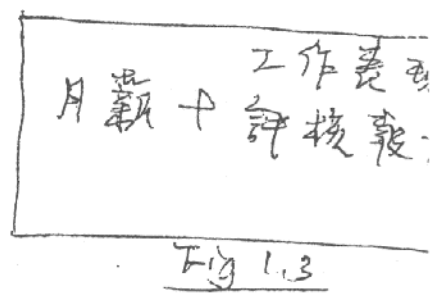 工作表現
月薪+
評核報
Fig 1.3